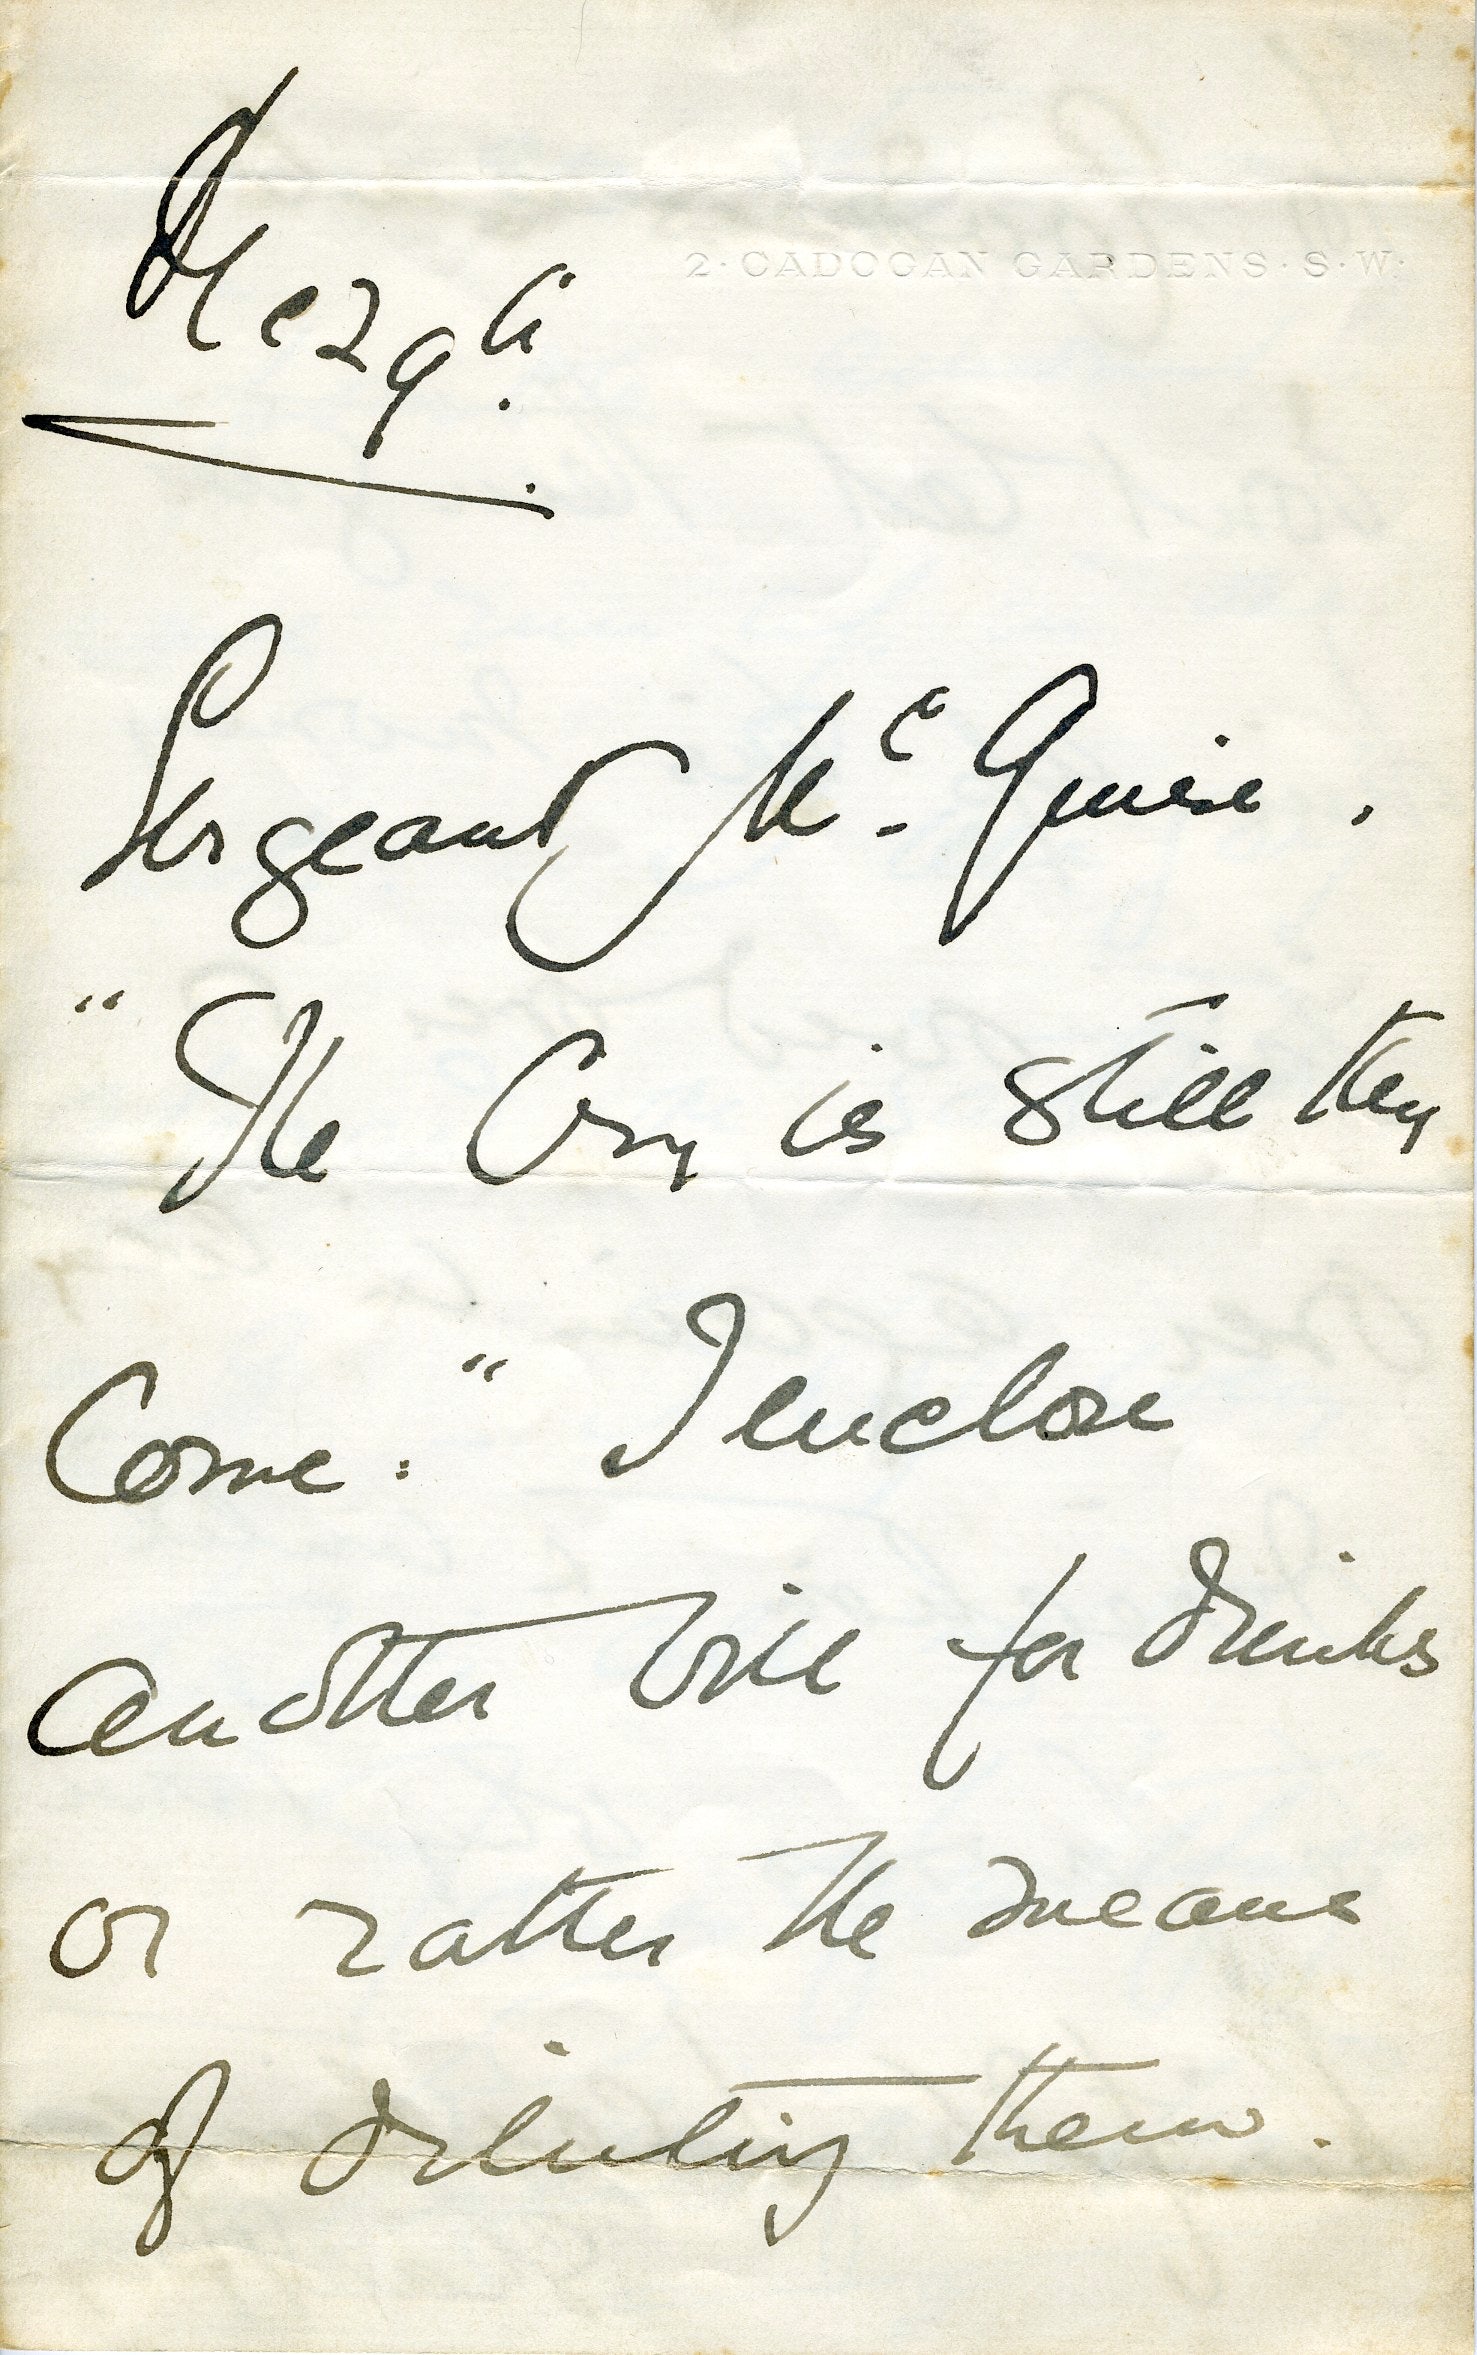 2 · CADOGAN GARDENS · S · W ·
Dec 29th.
Sergeant Mc. Guire.
"The Cry is still they
Come:" I enclose
another bill for drinks
or rather the means
of diluting them.